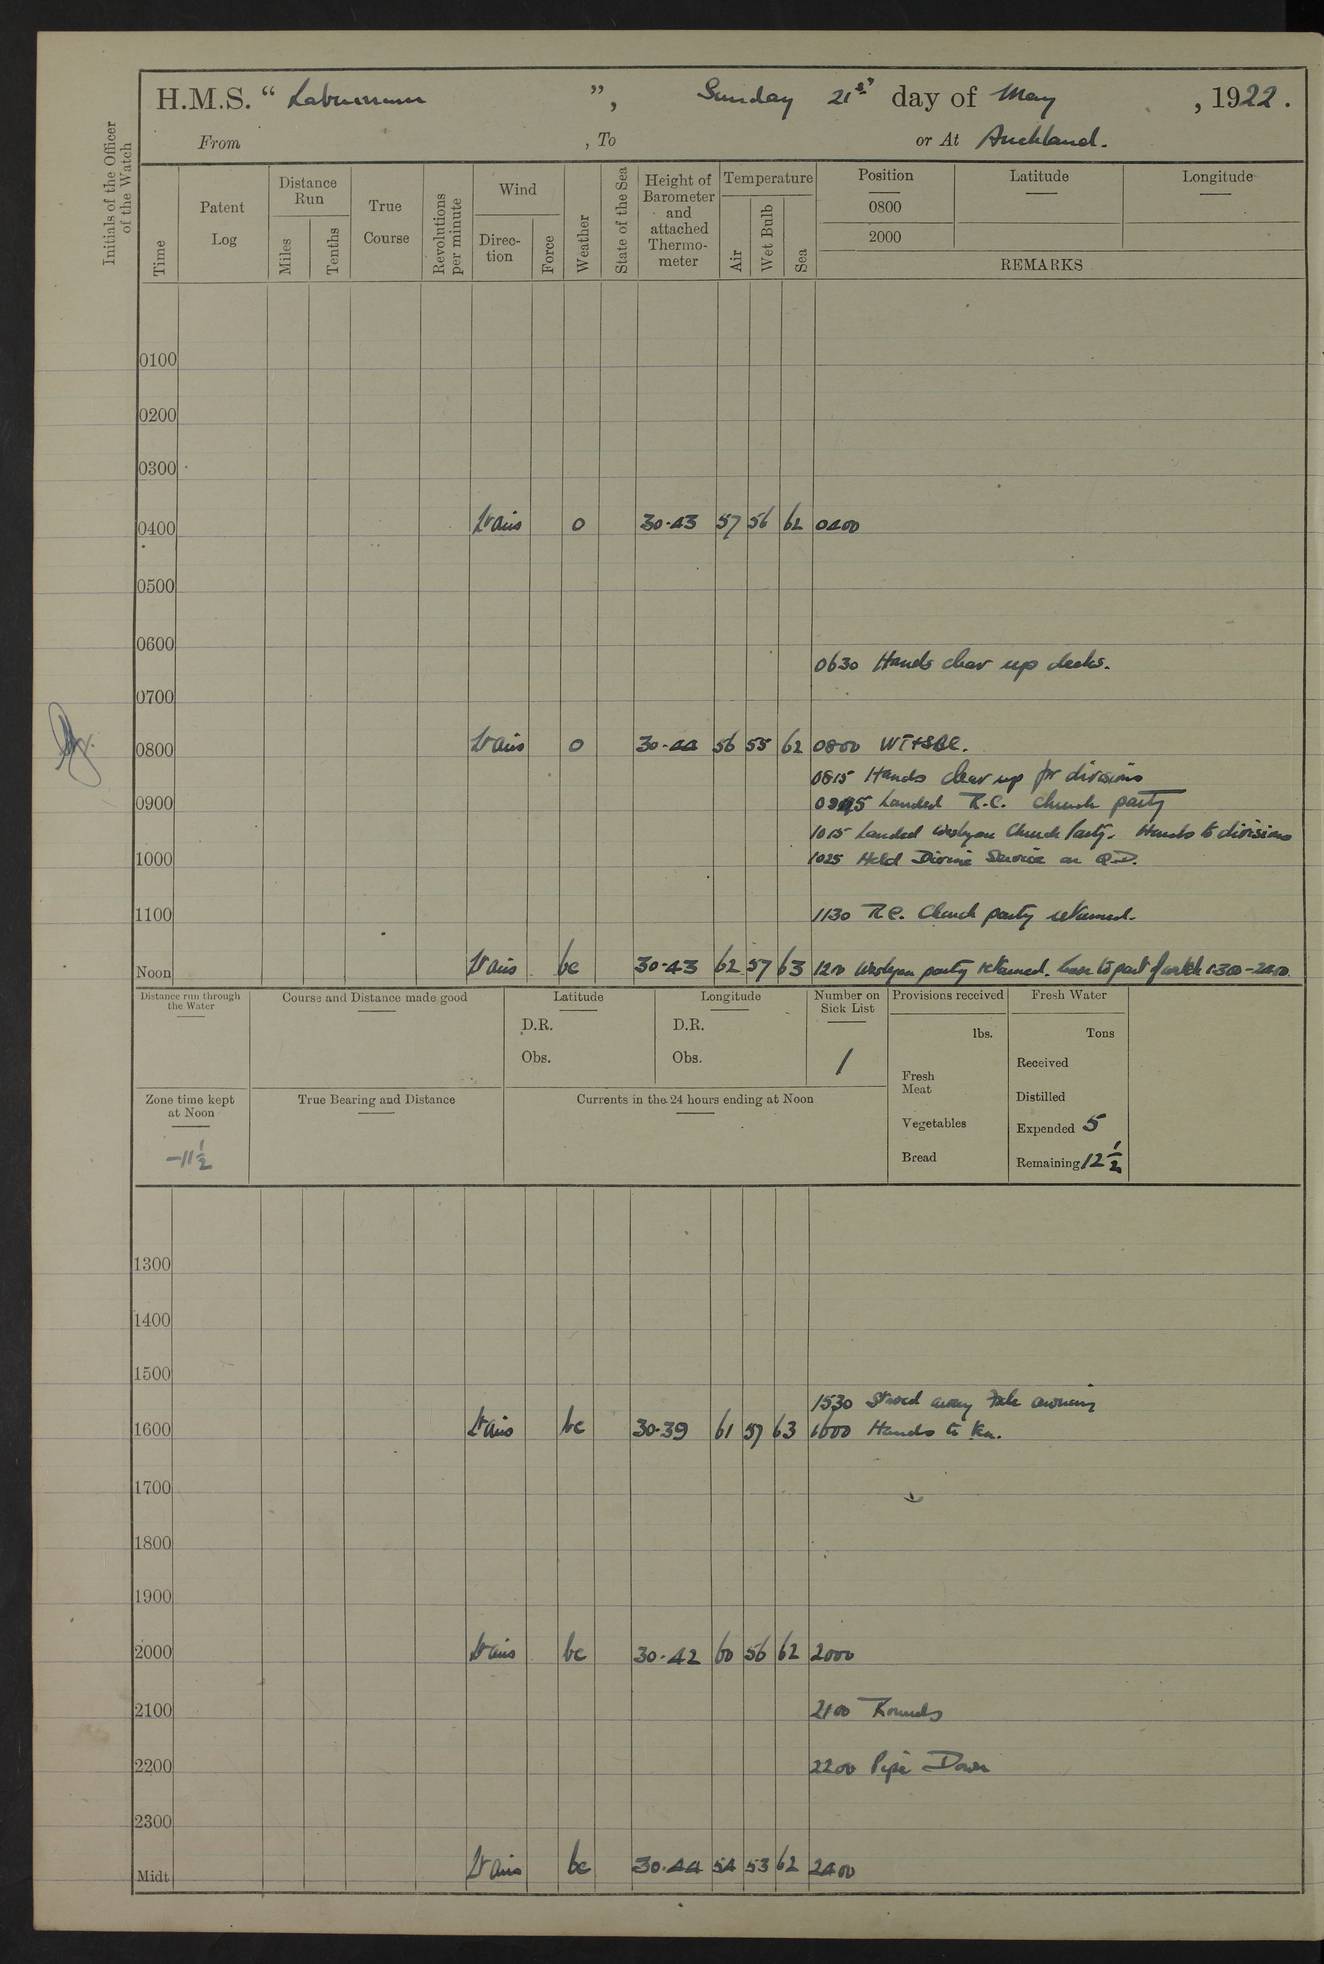 H.M.S. “ Laburnum ”, Sunday 21st day of May , 1922.
From , To or At Auckland.
Initials of the Officer of the Watch
Time
Patent Log
Distance Run
Miles
Tenths
True Course
Revolutions per minute
Wind
Direc-tion
Force
Weather
State of the Sea
Height of Barometer and attached Thermo-meter
Temperature
Air
Wet Bulb
Sea
Position
0800
2000
Latitude
Longitude
REMARKS
0100
0200
0300
0400 Lt airs o 30.43 57 56 62 0400
0500
0600
0630 Hands clear up decks.
0700
0800 Lt airs o 30.44 56 55 62 0800
0815 Hands clear up for divisions
0900 0945 Landed R.C. church party
1015 Landed Wesleyan Church Party. Hands to divisions
1000 1025 Held Divine Service on Q.D.
1100 1130 R.C. Church party returned.
Noon Lt airs bc 30.43 62 57 63 1200 Wesleyan party returned. Leave to part of watch 1300-2400
Distance run through the Water
Course and Distance made good
Latitude
D.R.
Obs.
Longitude
D.R.
Obs.
Number on Sick List
1
Provisions received
lbs.
Fresh Meat
Vegetables
Bread
Fresh Water
Tons
Received
Distilled
Expended 5
Remaining 12 1/2
Zone time kept at Noon
-11 1/2
True Bearing and Distance
Currents in the 24 hours ending at Noon
1300
1400
1500
1530 Stowed away awning
1600 Lt airs bc 30.39 61 57 63 1600 Hands to tea.
1700
1800
1900
2000 Lt airs bc 30.42 60 56 62 2000
2100 2100 Rounds
2200 2200 Pipe Down
2300
Midt Lt airs bc 30.44 54 53 62 2400